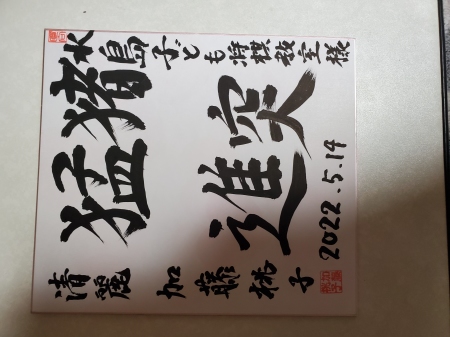 水島子ども将棋教室様
猪突
猛進
清麗 加藤桃子
2022.5.14